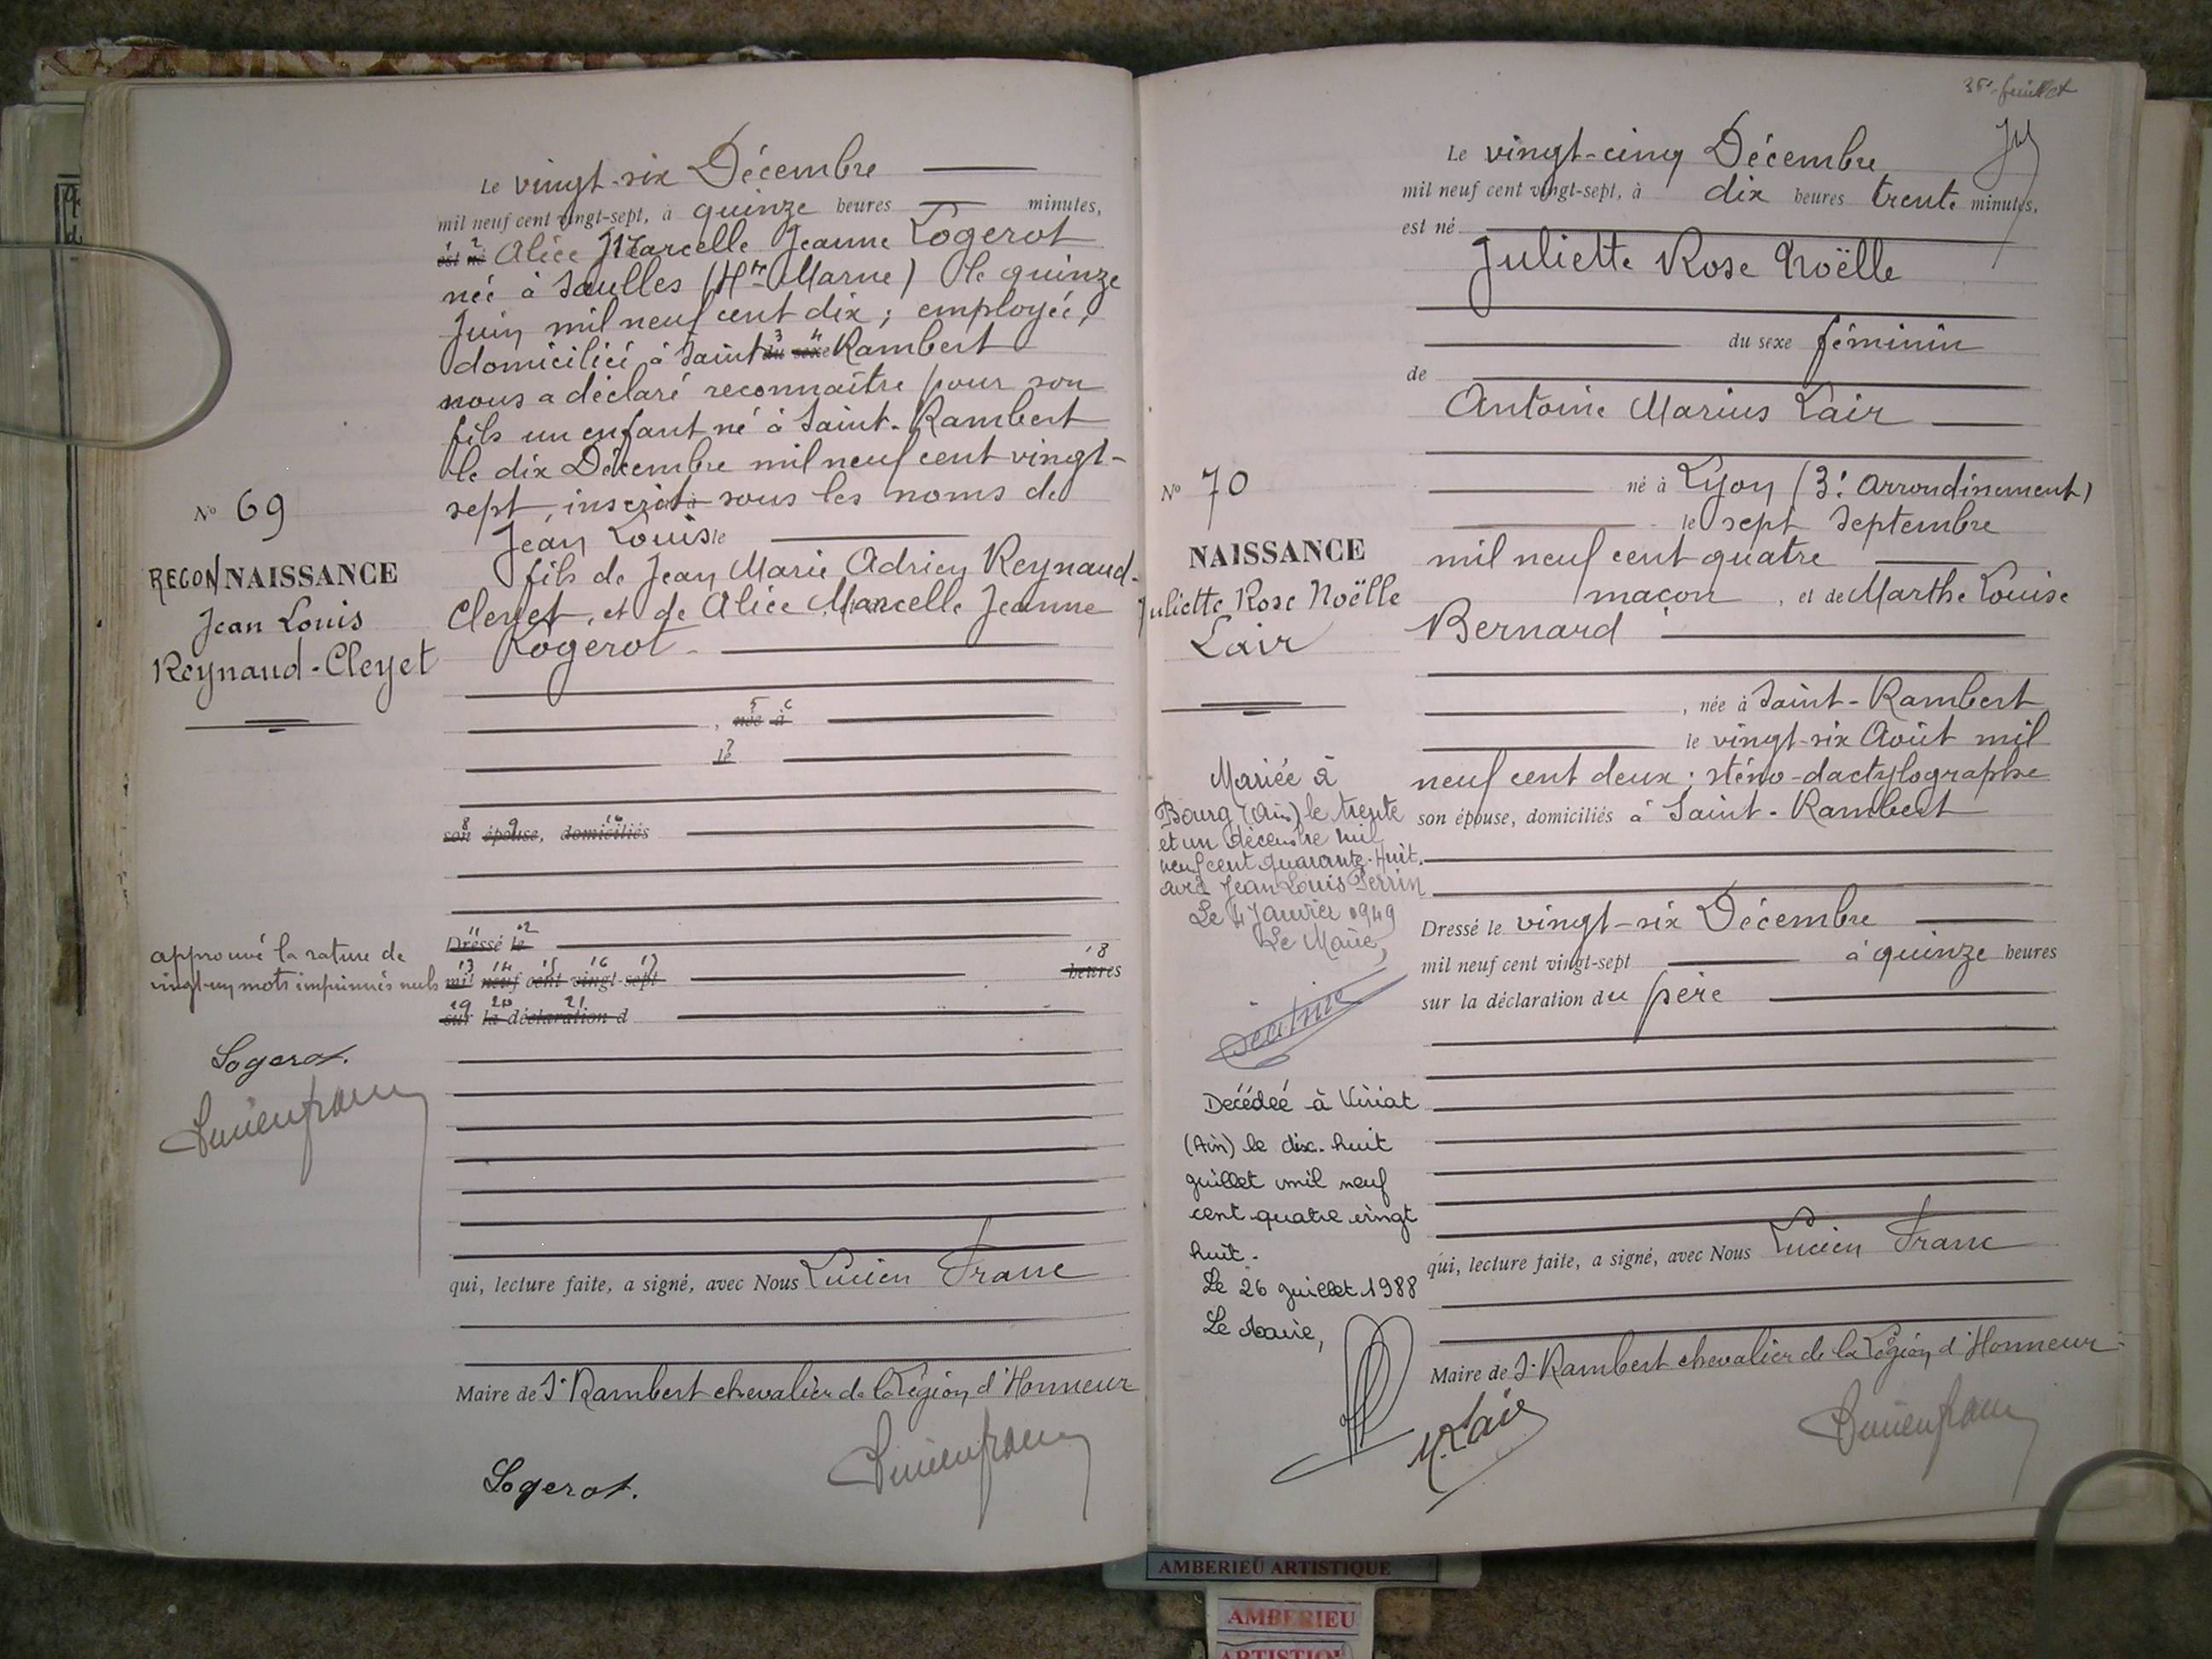 Le vingt-six Décembre
mil neuf cent vingt-sept, à quinze heures minutes,
1 2
est né Alice Marcelle Jeanne Logerot
née à Saulles (Hte Marne) le quinze
Juin mil neuf cent dix ; employée,
3 4
domiciliée à Saint du sexe Rambert
nous a déclaré reconnaître pour son
fils un enfant né à Saint-Rambert
le dix Décembre mil neuf cent vingt-
sept, inscrit sous les noms de
Jean Louis le
fils de Jean Marie Adrien Reynaud-
Cleyet, et de Alice Marcelle Jeanne
Logerot
5 6
, née à
7
le
8 9 10
son épouse, domiciliés
11 12
Dressé le
13 14 15 16 17 18
mil neuf cent vingt-sept heures
19 20 21
sur la déclaration d
qui, lecture faite, a signé, avec Nous Lucien Franc
Maire de St Rambert chevalier de la Légion d'Honneur
Logerot.
Lucien franc
No 69
RECONNAISSANCE
Jean Louis
Reynaud-Cleyet
approuvé la rature de
vingt-un mots imprimés nuls
Logerot.
Lucien franc
35e feuillet
Le vingt-cinq Décembre
mil neuf cent vingt-sept, à dix heures trente minutes,
est né
Juliette Rose Noëlle
du sexe féminin
de
Antoine Marius Lair
né à Lyon (3e arrondissement)
le sept Septembre
mil neuf cent quatre
maçon, et de Marthe Louise
Bernard
, née à Saint-Rambert
le vingt-six Août mil
neuf cent deux ; sténo-dactylographe
son épouse, domiciliés à Saint-Rambert
Dressé le vingt-six Décembre
mil neuf cent vingt-sept à quinze heures
sur la déclaration du père
qui, lecture faite, a signé, avec Nous Lucien Franc
Maire de St Rambert chevalier de la Légion d'Honneur
M. Lair
Lucien franc
No 70
NAISSANCE
Juliette Rose Noëlle
Lair
Mariée à
Bourg (Ain) le trente
et un décembre mil
neuf cent quarante-Huit.
avec Jean Louis Perrin
Le 4 Janvier 1949
Le Maire,
Décédée à Viriat
(Ain) le dix-huit
juillet mil neuf
cent quatre vingt
huit.
Le 26 juillet 1988
Le Maire,
AMBERIEU ARTISTIQUE
AMBERIEU
ARTISTIQU